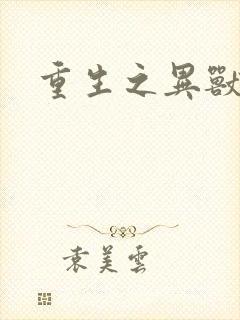 重生之異獸
袁美雲